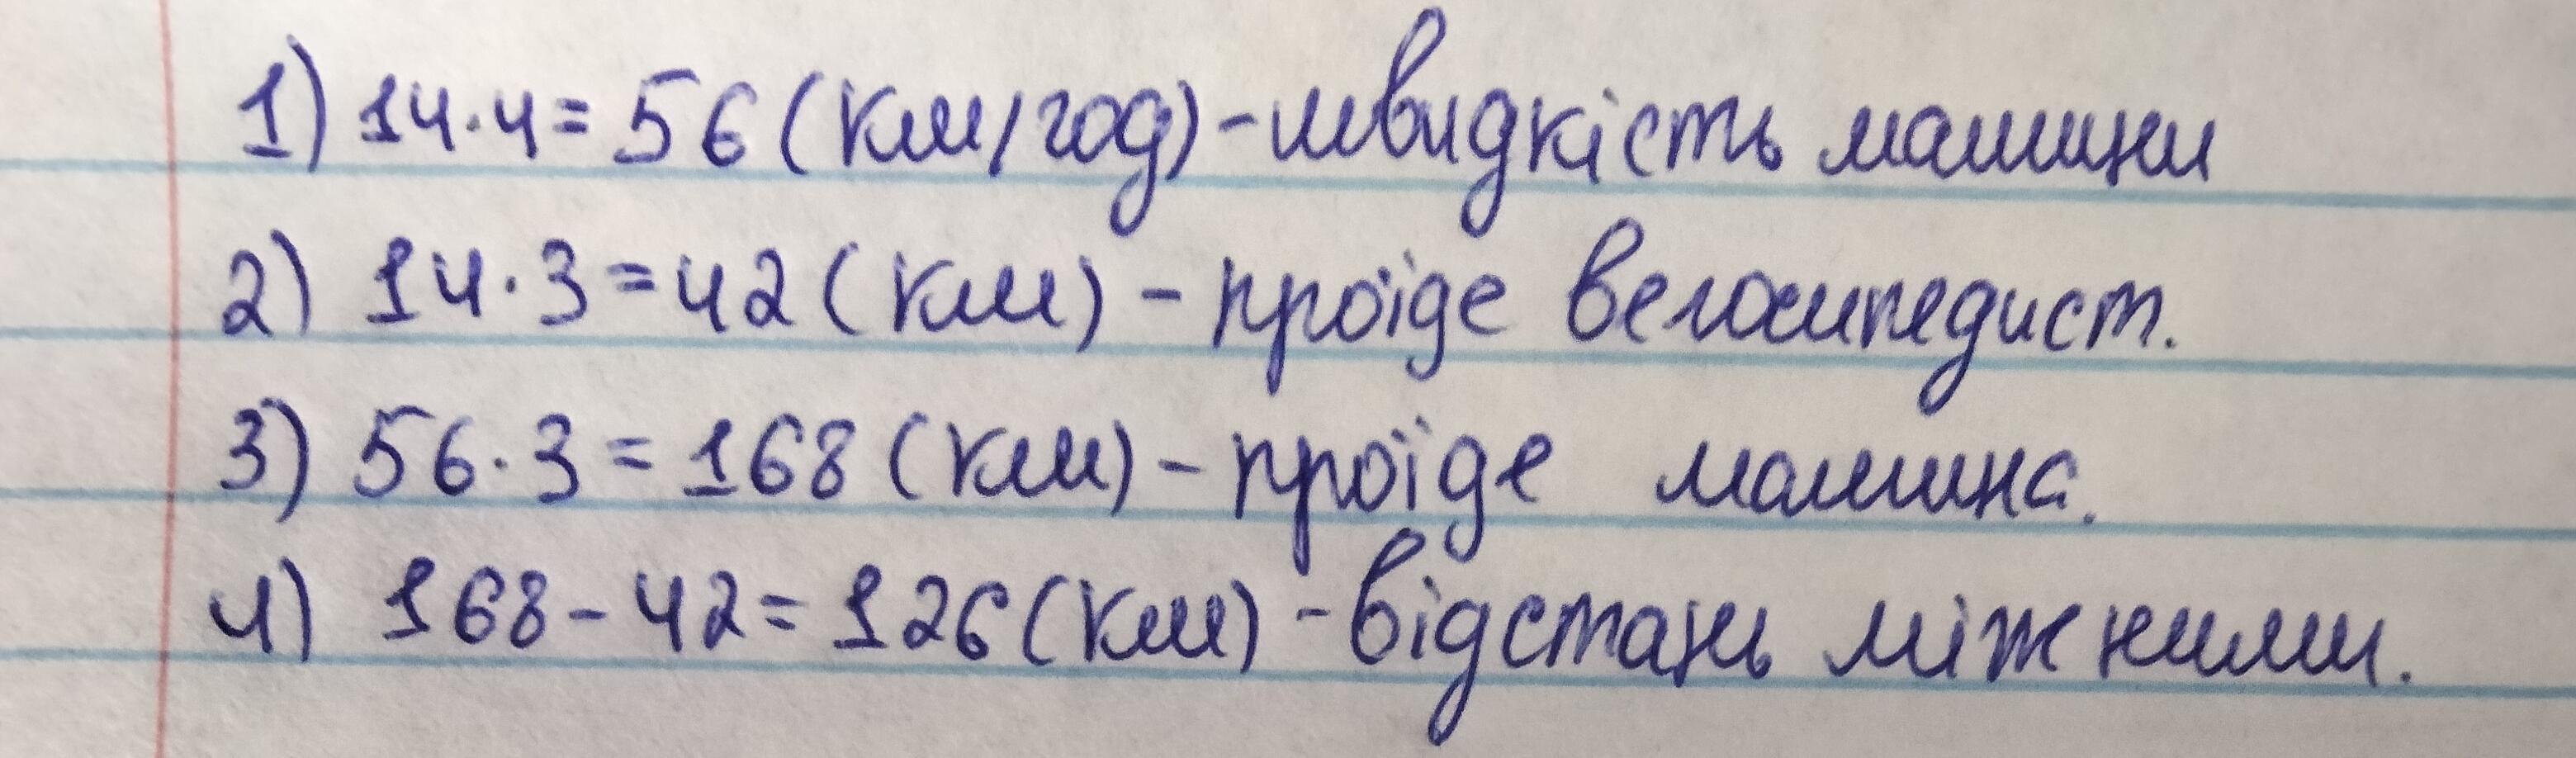 1) 14·4=56(км/год)-швидкість машини
2) 14·3=42(км)-проїде велосипедист.
3) 56·3=168(км)-проїде машина.
4) 168-42=126(км)-відстань між ними.